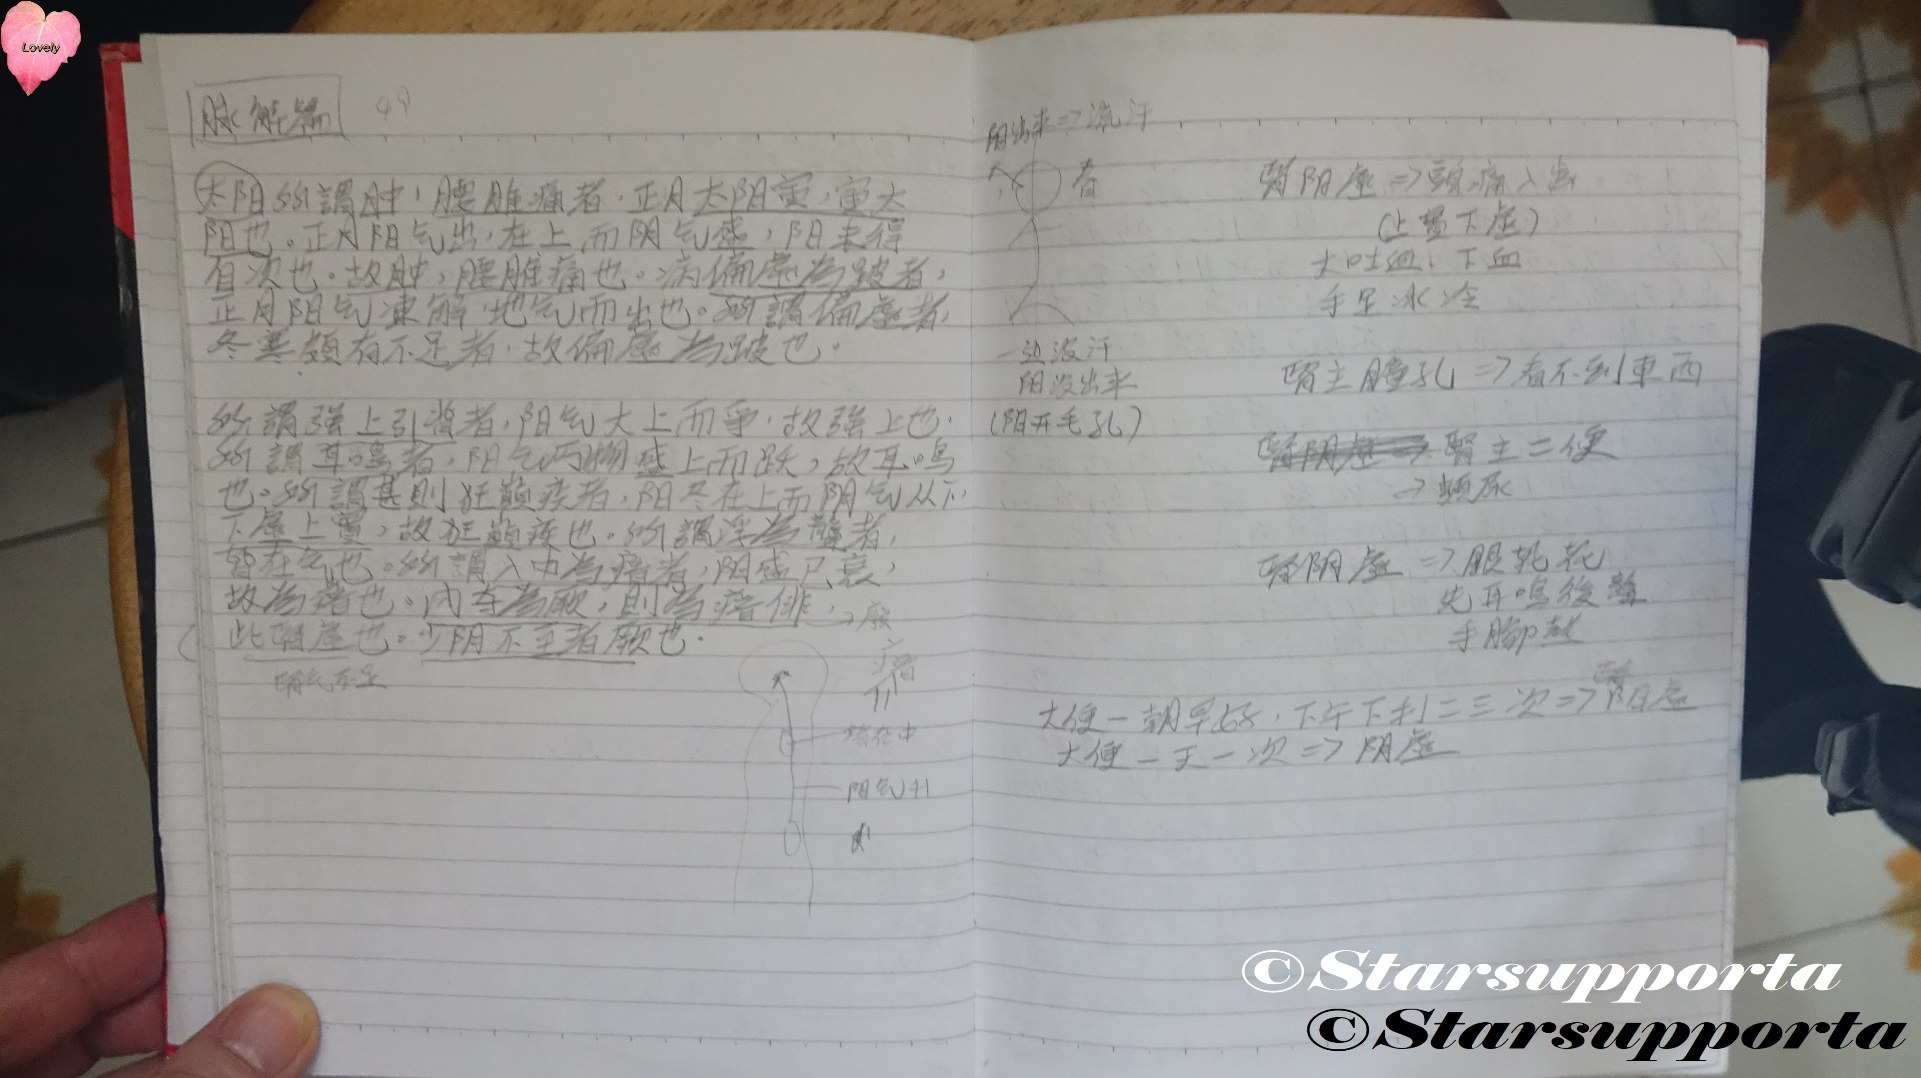 Lovely
脉解篇 49
太阳所謂肿，腰脽痛者，正月太阳寅，寅太
阳也。正月阳气出，在上而阴气盛，阳未得
自次也。故肿，腰脽痛也。病偏虚為跛者，
正月阳气凍解地气而出也。所謂偏虚者，
冬寒頗有不足者，故偏虚為跛也。
所謂強上引背者，阳气大上而爭，故強上也。
所謂耳鳴者，阳气万物盛上而跃，故耳鳴
也。所謂甚則狂巔疾者，阳尽在上而阴气从下
下虚上實，故狂巔疾也。所謂浮為聾者，
皆在气也。所謂入中為瘖者，阳盛已衰，
故為瘖也。内夺為厥，則為瘖俳，
此腎虚也。少阴不至者厥也。
腎气不足
阳出來⇒流汗
春
一边没汗
阳没出來
(阳开毛孔)
腎阴虚⇒頭痛
(上實下虚)
大吐血、下血
手足冰冷
腎主瞳孔⇒看不到東西
腎阴虚⇒ 腎主二便
→頻尿
腎阴虚⇒眼乾花
先耳鳴後聾
手腳熱
大便一朝早好，下午下利二三次⇒腎阳虚
大便一天一次⇒阴虚
©Starsupporta
©Starsupporta